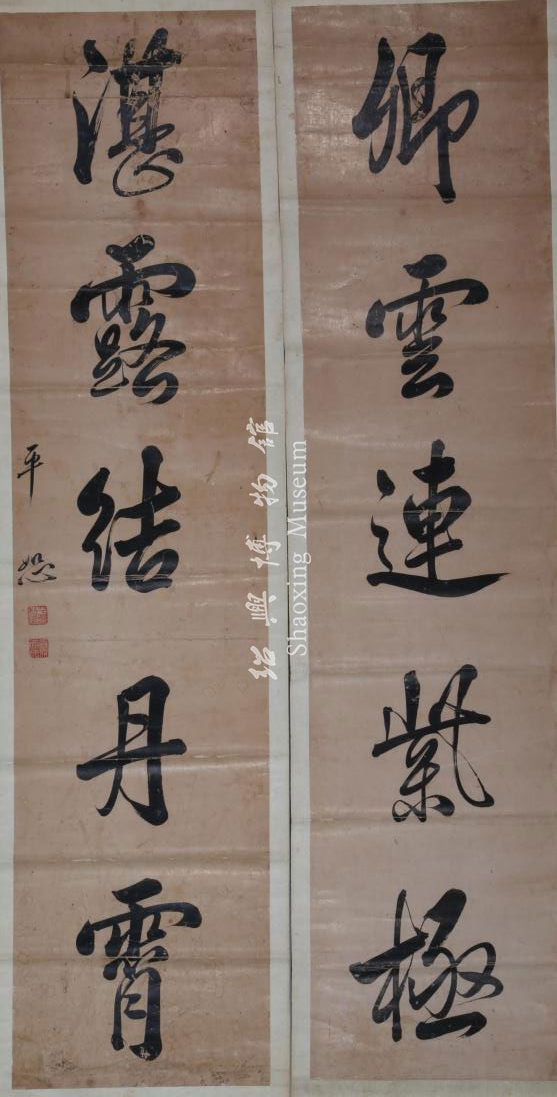 卿雲連紫極
湛露結丹霄
平恕
紹興博物館
Shaoxing Museum